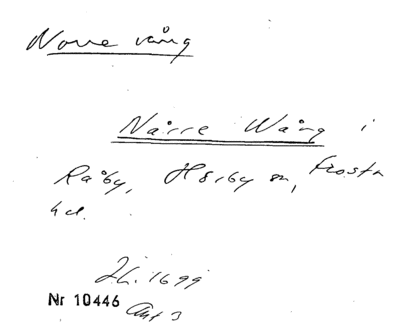 Norre vång
Nårre Wång i
Råby, Hörby sn, Frosta
hd.
Jb. 1699
Nr 10446 Akt 3